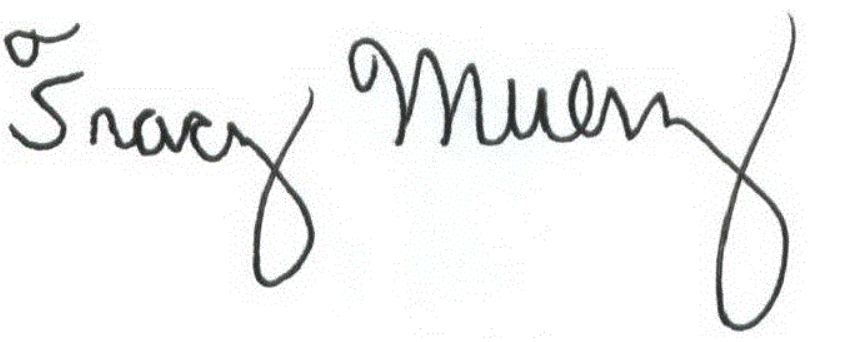 Tracy Muerry